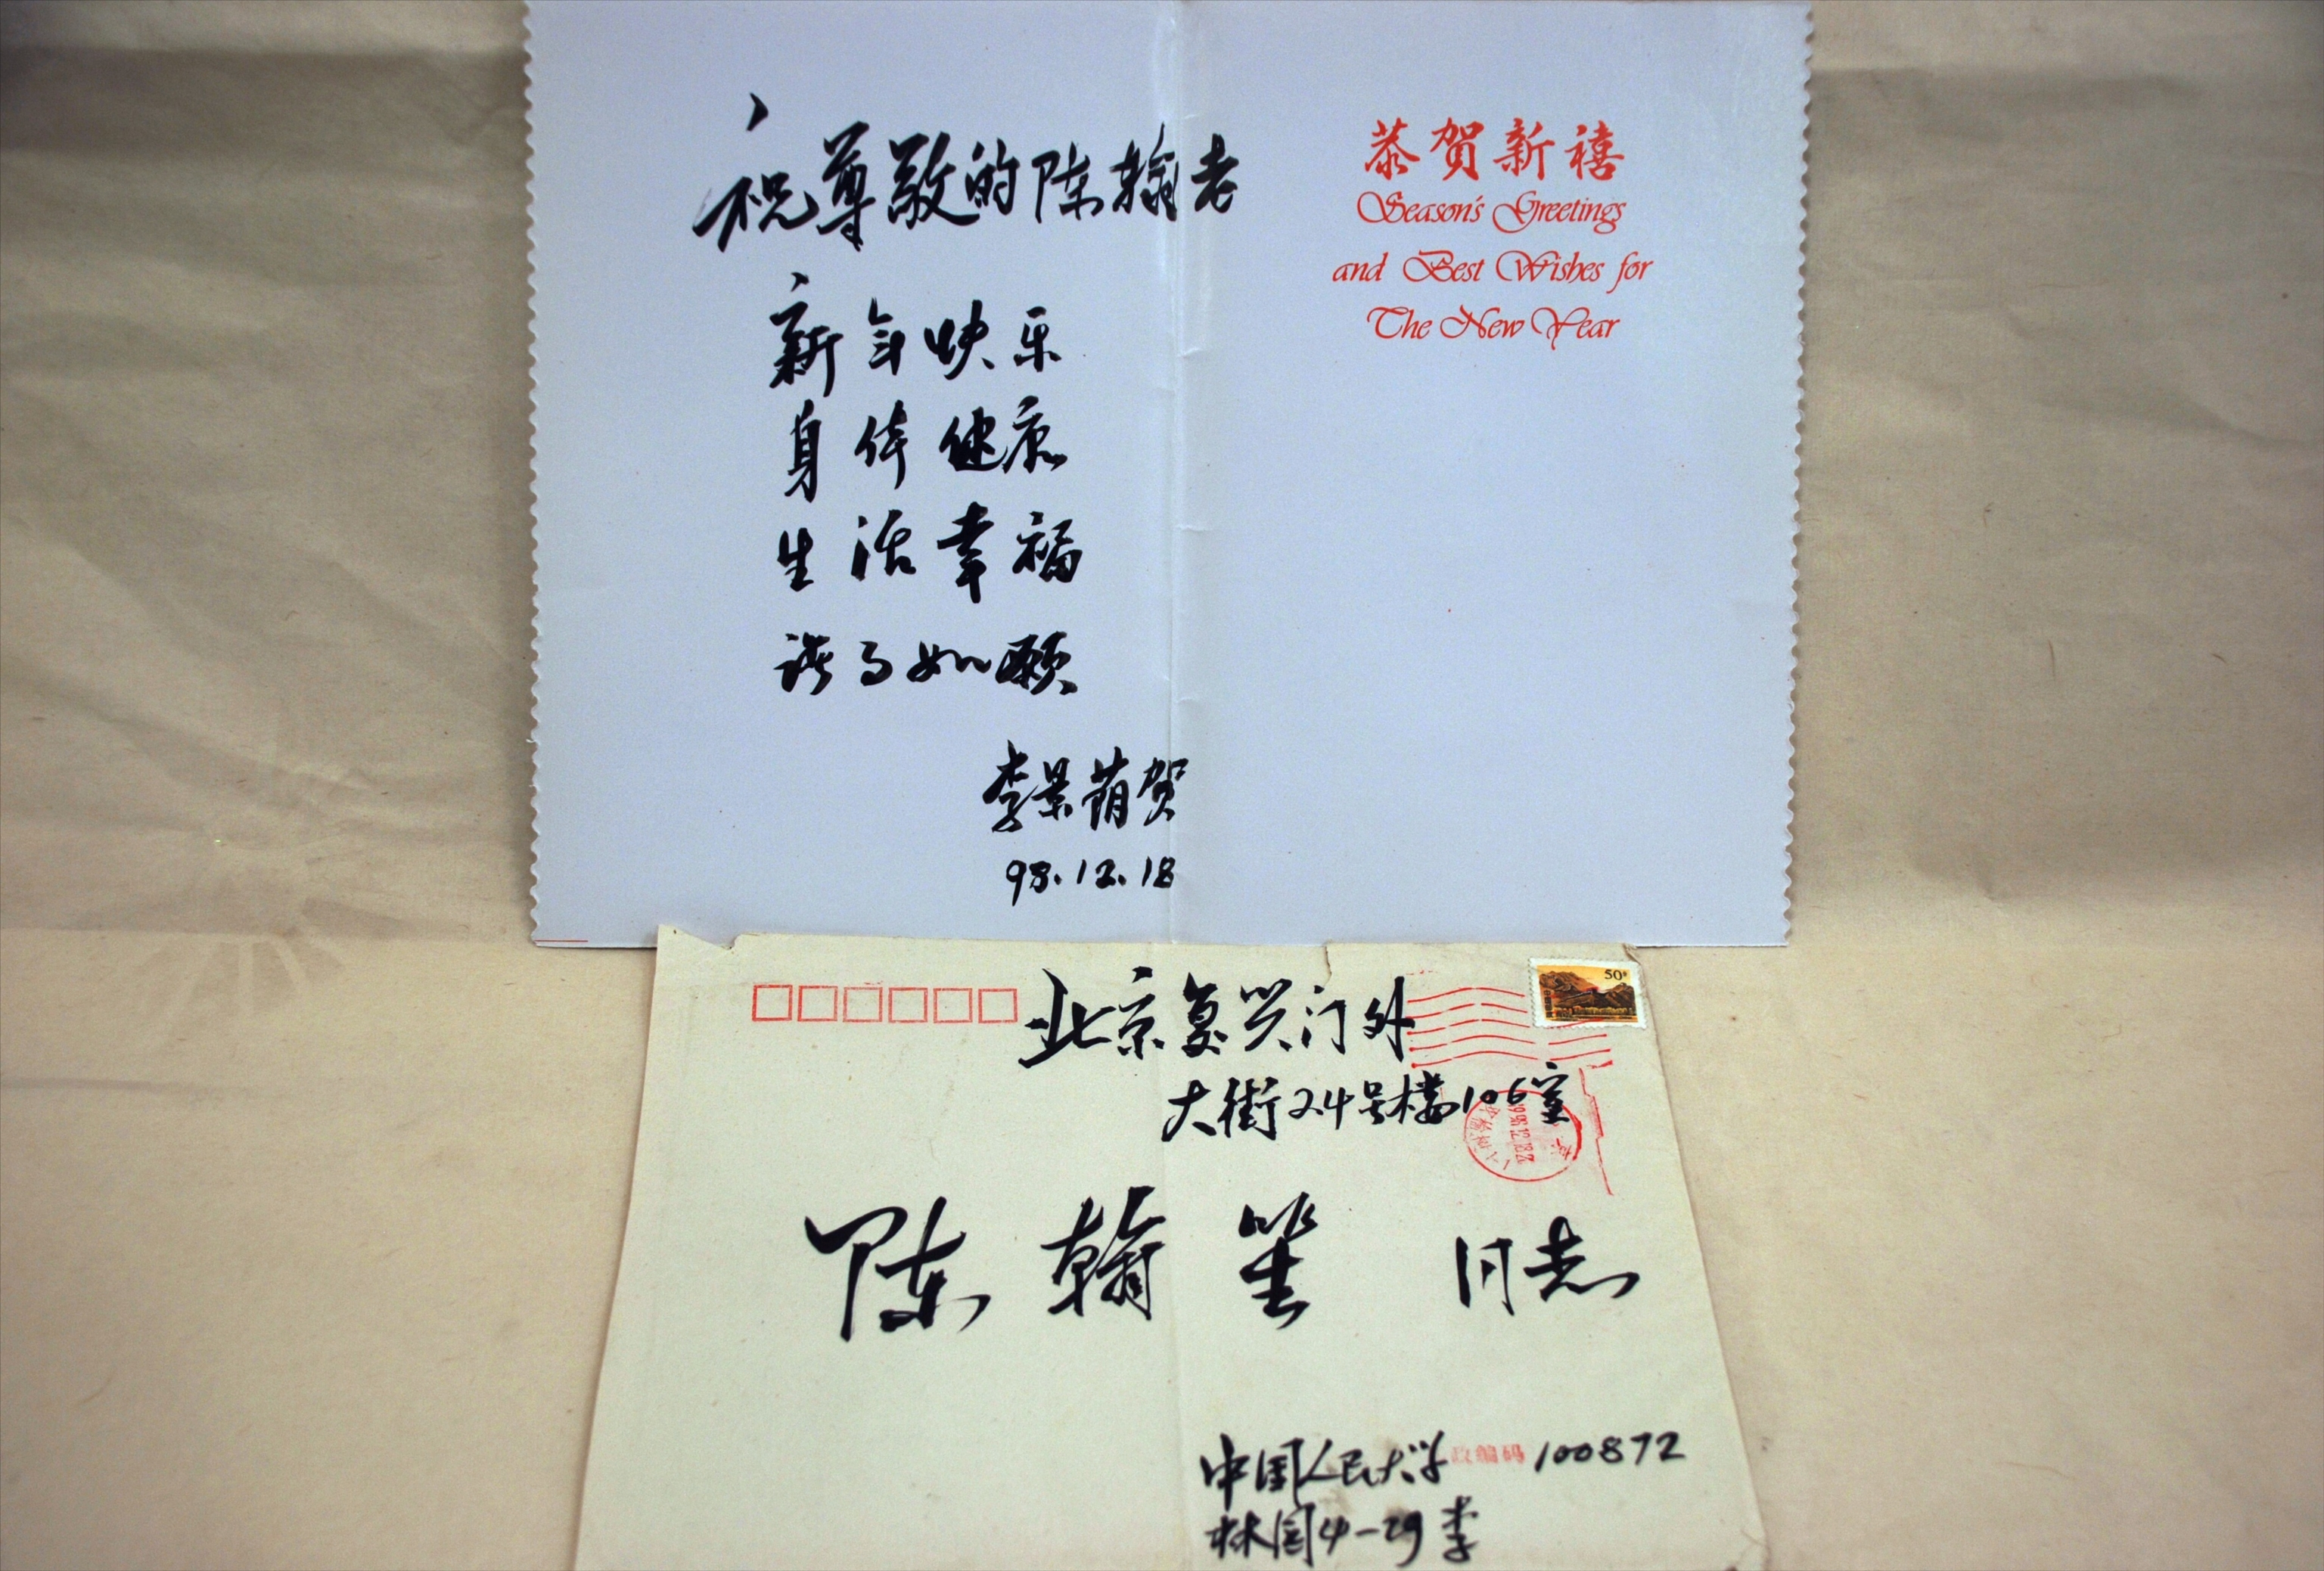 祝尊敬的陈翰老
新年快乐
身体健康
生活幸福
诸事如愿
李景萌贺
98.12.18
恭贺新禧
Season's Greetings
and Best Wishes for
The New Year
50分
北京复兴门外
大街24号楼106室
陈翰笙 同志
中国人民大学 政编码 100872
林园4-29 李